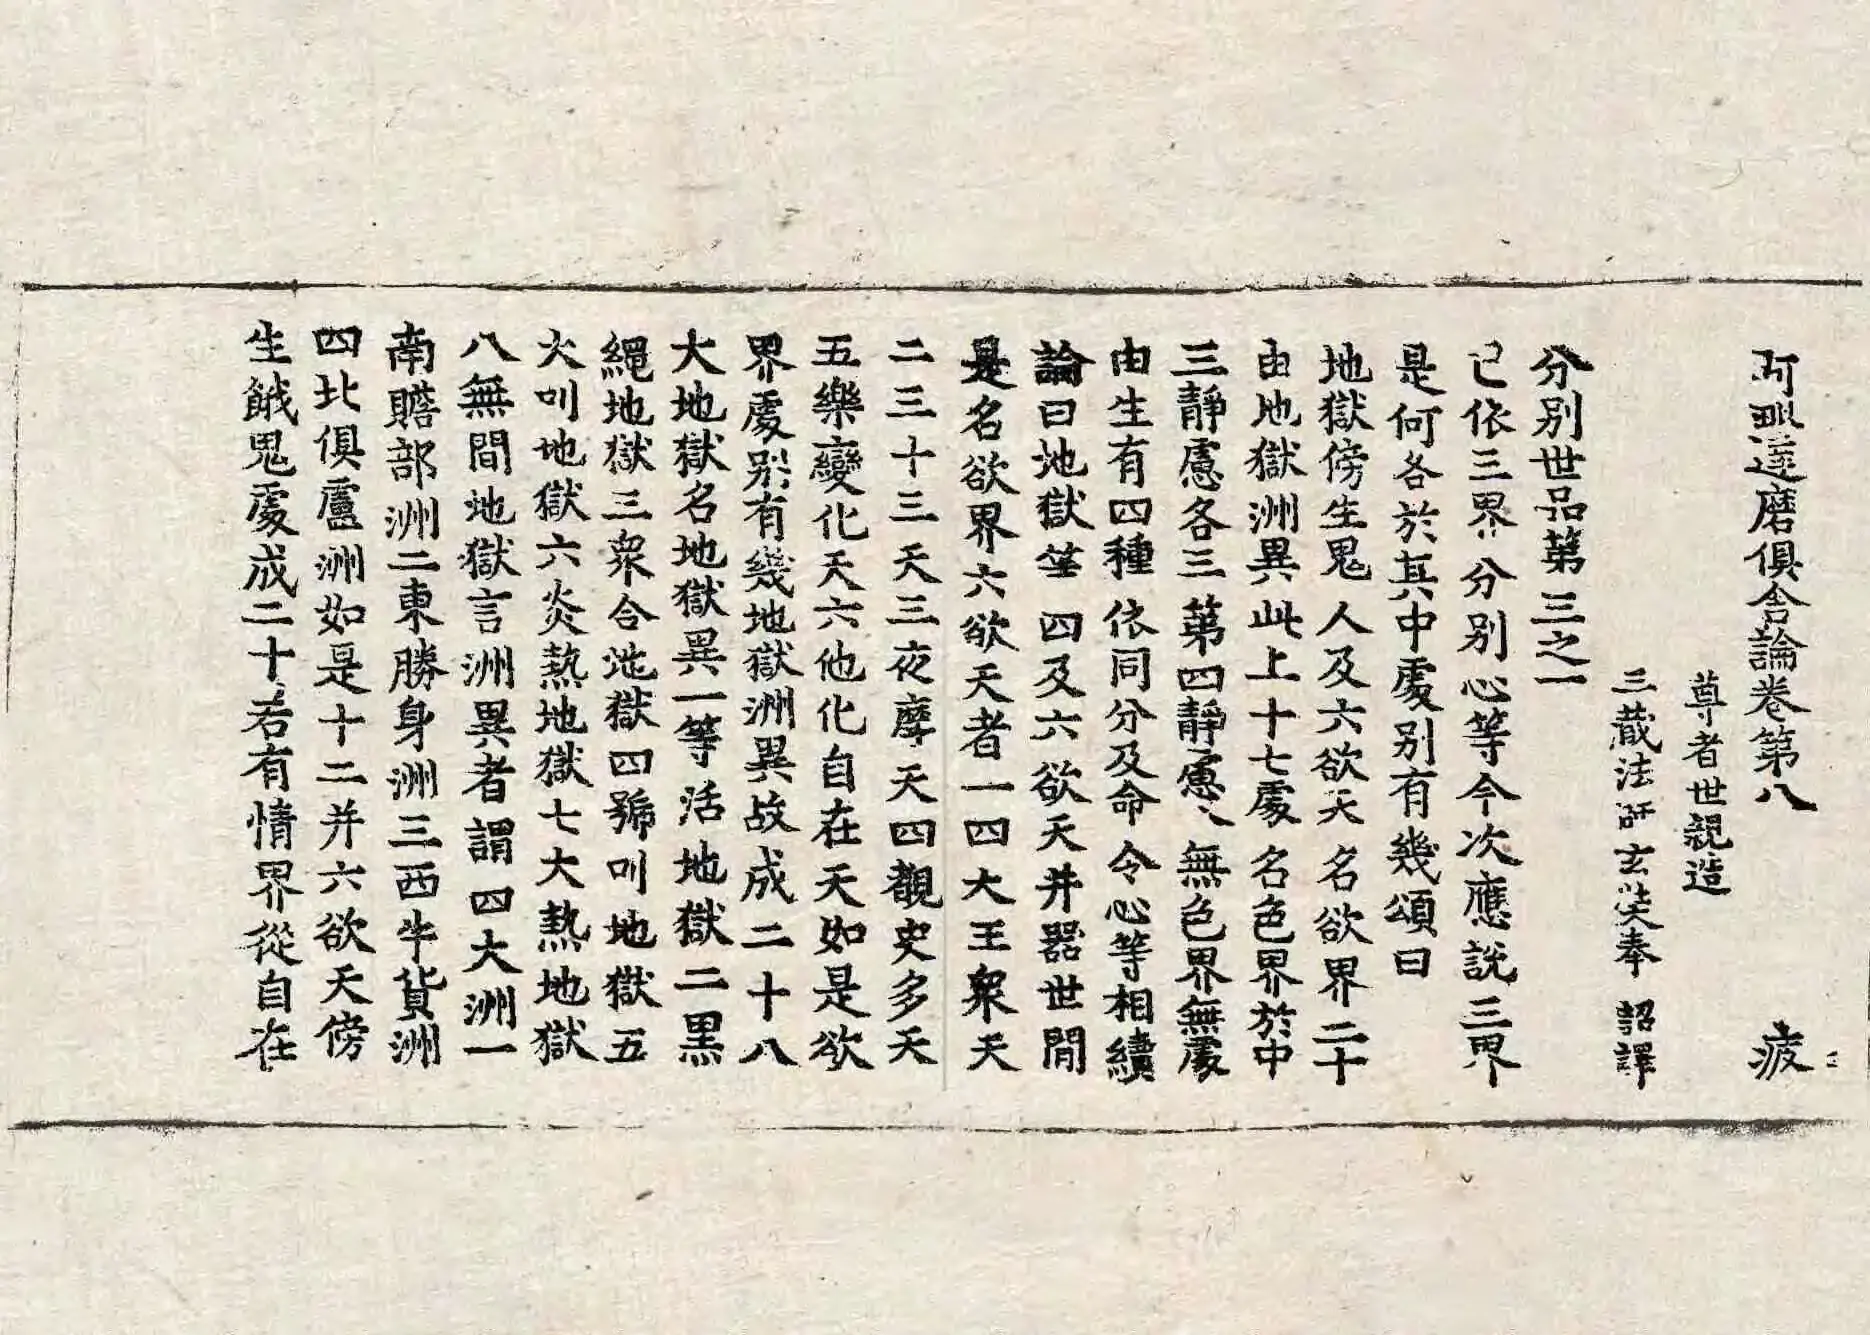 阿毗達磨俱舍論卷第八 疲
尊者世親造
三藏法師玄奘奉 詔譯
分別世品第三之一
已依三界分別心等今次應說三界
是何各於其中處別有幾頌曰
地獄傍生鬼 人及六欲天 名欲界二十
由地獄洲異 此上十七處 名色界於中
三靜慮各三 第四靜慮八 無色界無處
由生有四種 依同分及命 令心等相續
論曰地獄等 四及六欲天并器世間
是名欲界六欲天者一四大王衆天
二三十三天三夜摩天四覩史多天
五樂變化天六他化自在天如是欲
界處別有幾地獄洲異故成二十八
大地獄名地獄異一等活地獄二黑
繩地獄三衆合地獄四號叫地獄五
大叫地獄六炎熱地獄七大熱地獄
八無間地獄言洲異者謂四大洲一
南贍部洲二東勝身洲三西牛貨洲
四北俱盧洲如是十二并六欲天傍
生餓鬼處成二十若有情界從自在